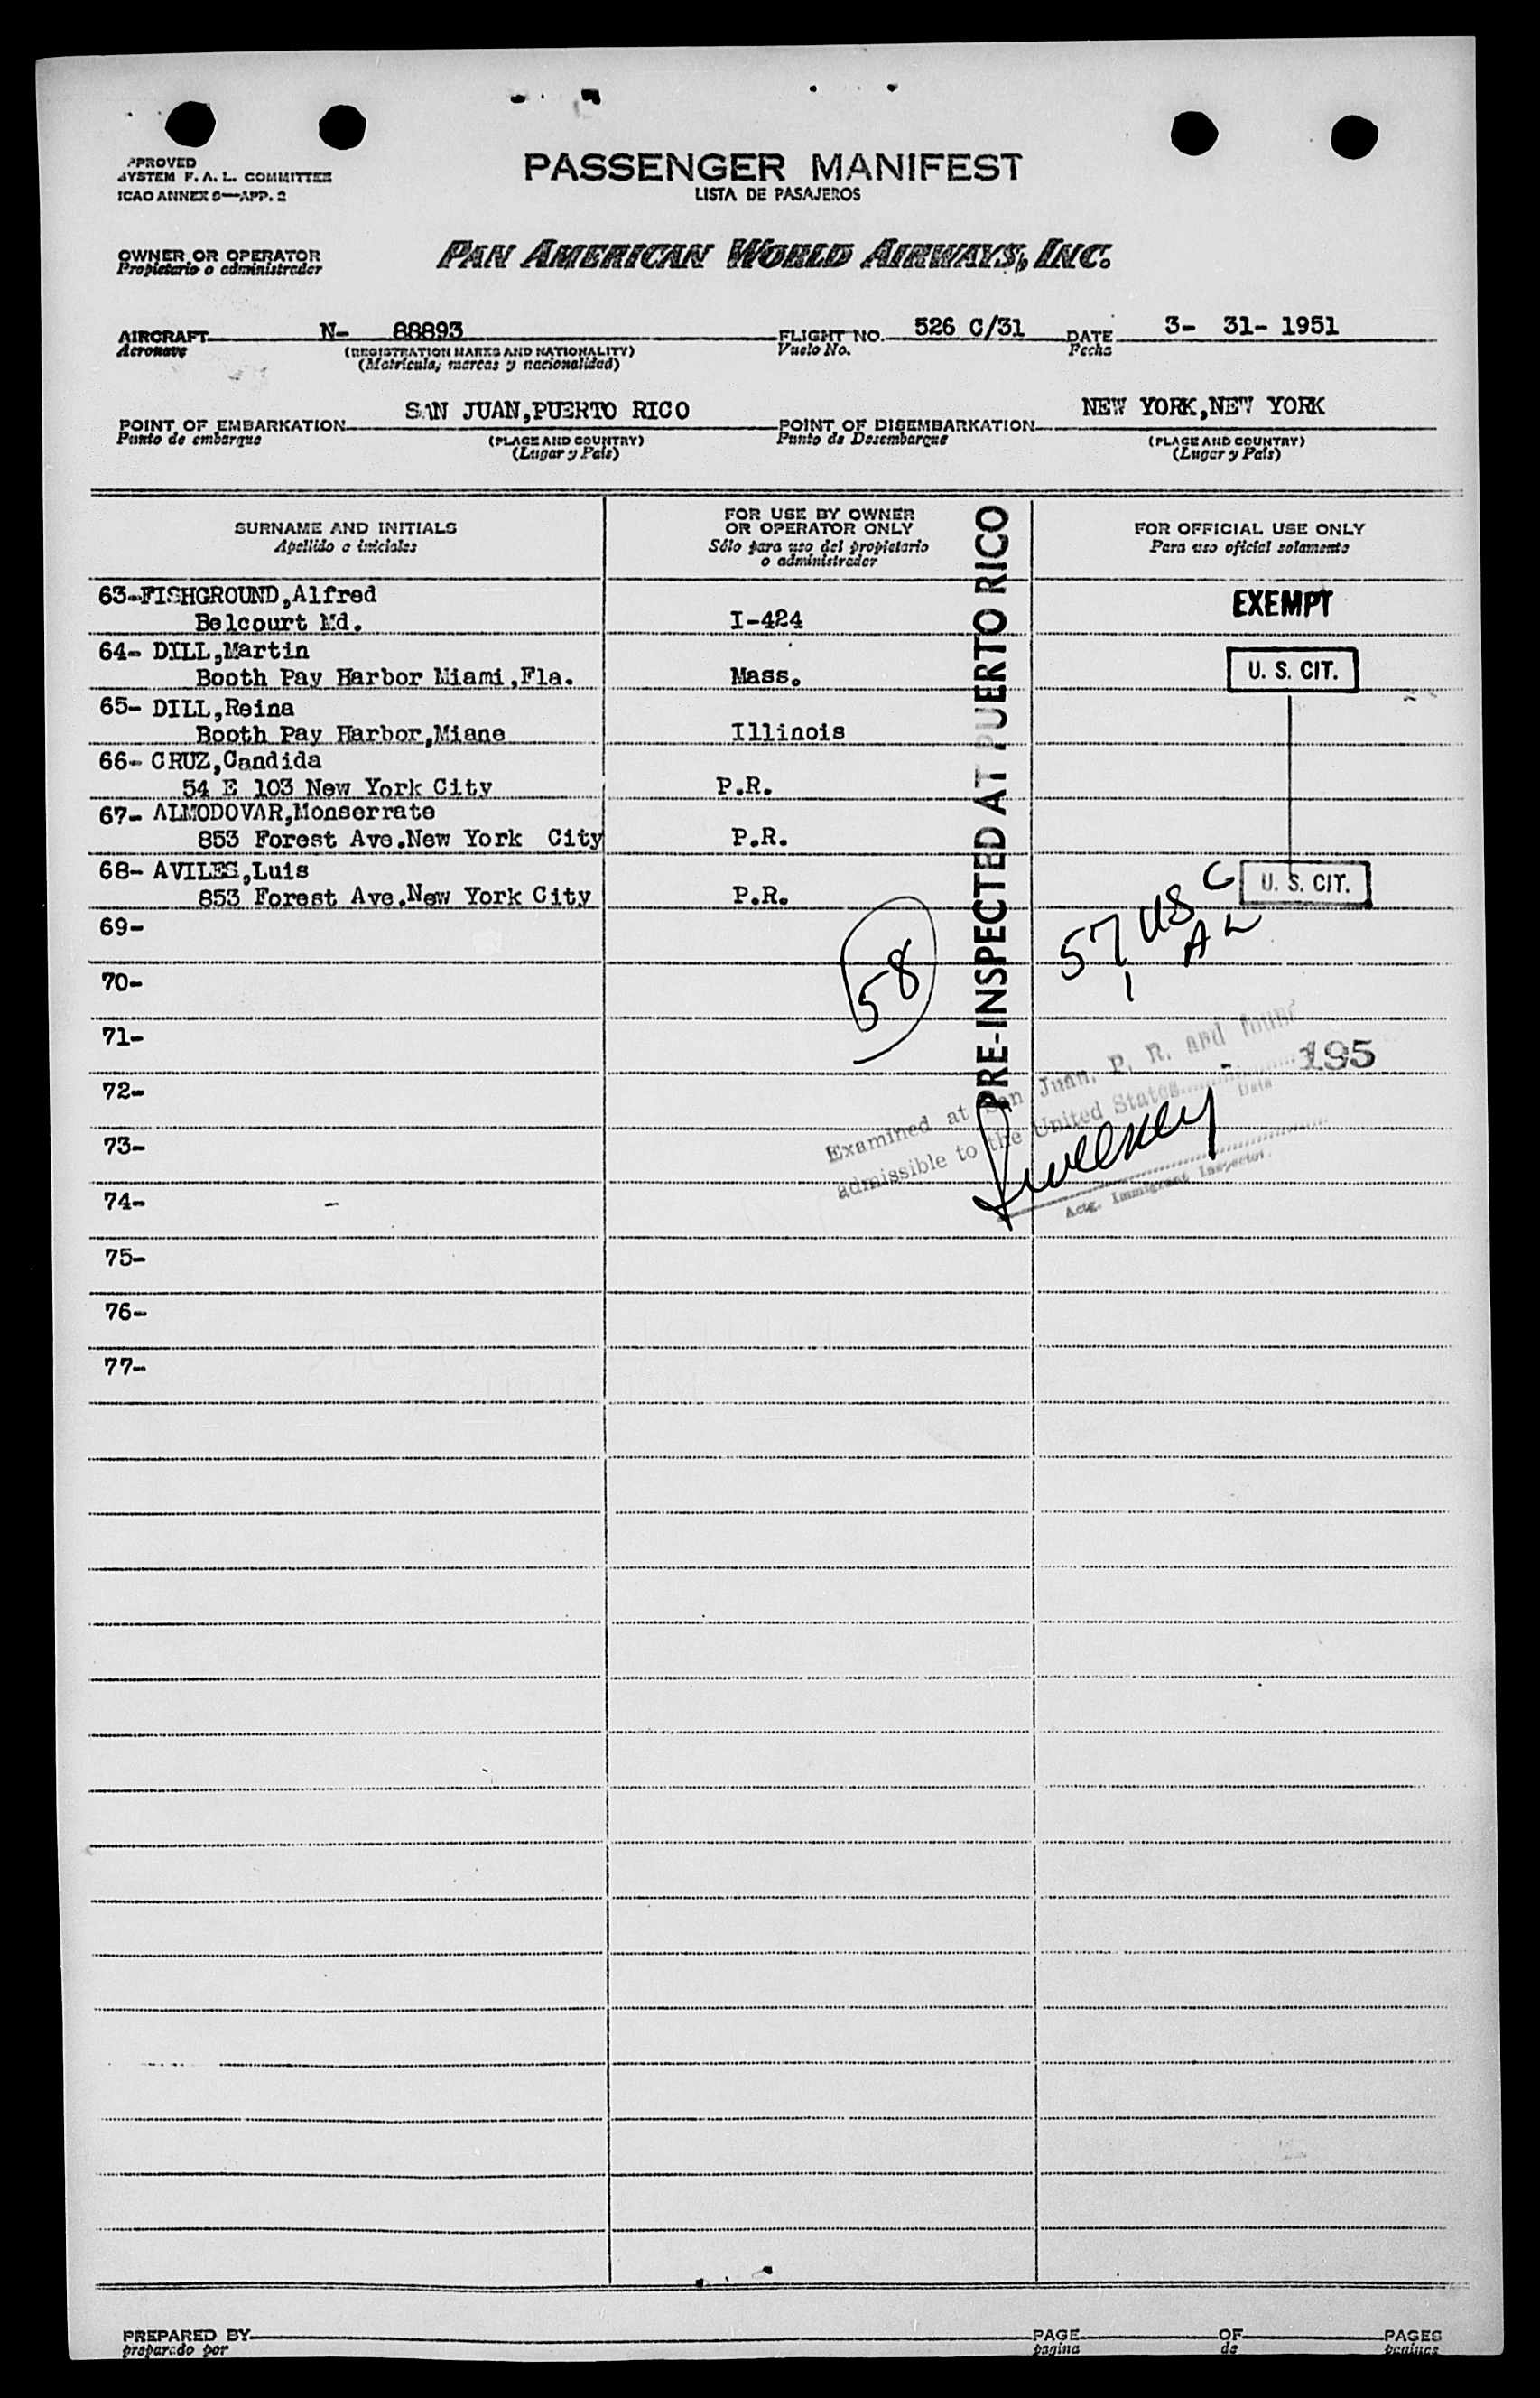 PPROVED
SYSTEM F. A. L. COMMITTEE
ICAO ANNEX 9—APP. 2
PASSENGER MANIFEST
LISTA DE PASAJEROS
OWNER OR OPERATOR
Propietario o administrador
PAN AMERICAN WORLD AIRWAYS, INC.
AIRCRAFT N- 88893 FLIGHT NO. 526 C/31 DATE 3- 31- 1951
Aeronave (REGISTRATION MARKS AND NATIONALITY) Vuelo No. Fecha
(Matrícula, marcas y nacionalidad)
POINT OF EMBARKATION SAN JUAN,PUERTO RICO POINT OF DISEMBARKATION NEW YORK,NEW YORK
Punto de embarque (PLACE AND COUNTRY) Punto de Desembarque (PLACE AND COUNTRY)
(Lugar y País) (Lugar y País)
SURNAME AND INITIALS
Apellido e iniciales
FOR USE BY OWNER
OR OPERATOR ONLY
Sólo para uso del propietario
o administrador
FOR OFFICIAL USE ONLY
Para uso oficial solamente
PRE-INSPECTED AT PUERTO RICO
63-FISHGROUND,Alfred EXEMPT
Belcourt Md. I-424
64- DILL,Martin U. S. CIT.
Booth Pay Harbor Miami,Fla. Mass.
65- DILL,Reina
Booth Pay Harbor,Miane Illinois
66- CRUZ,Candida
54 E 103 New York City P.R.
67- ALMODOVAR,Monserrate
853 Forest Ave.New York City P.R.
68- AVILES,Luis U. S. CIT.
853 Forest Ave.New York City P.R.
69- 58 57 US C
70- 1 A L
71-
72-
73-
74-
75-
76-
77-
Examined at San Juan, P. R. and found
admissible to the United States - 195
Date
Actg. Immigrant Inspector.
PREPARED BY PAGE OF PAGES
preparado por página de páginas